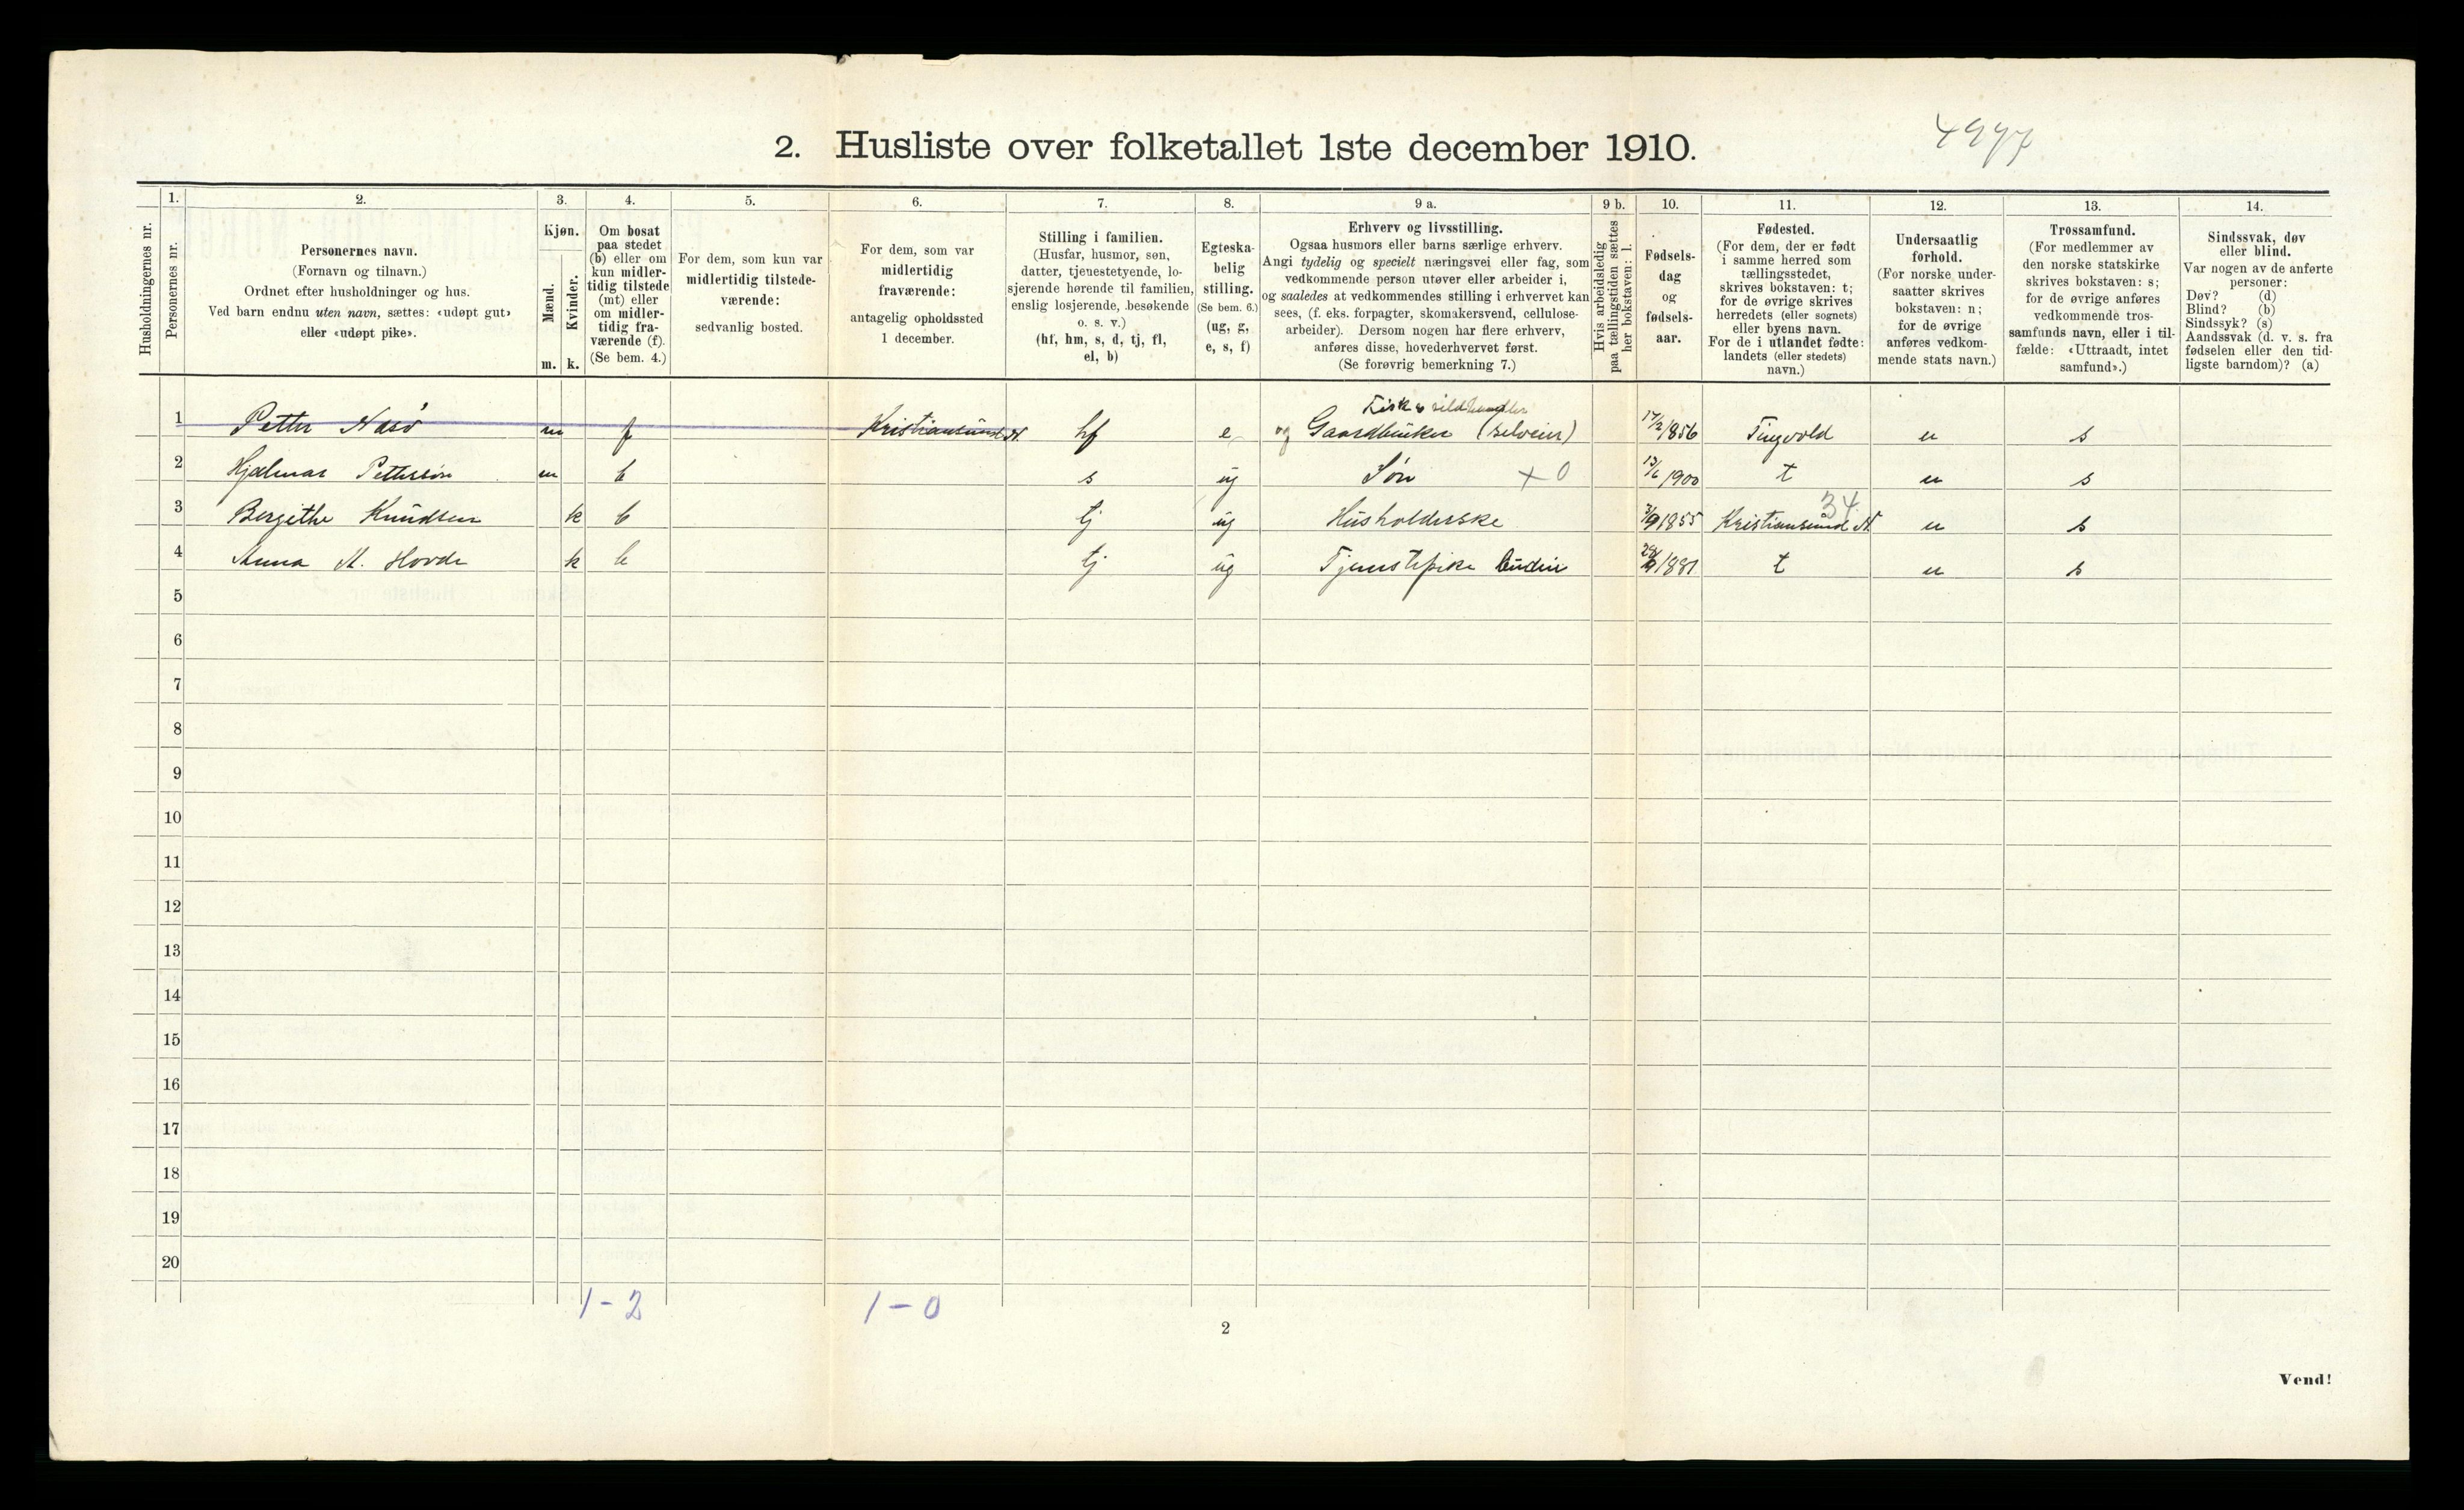 2. Husliste over folketallet 1ste december 1910.
4997
Husholdningernes nr.
1.
Personernes nr.
2.
Personernes navn.
(Fornavn og tilnavn.)
Ordnet efter husholdninger og hus.
Ved barn endnu uten navn, sættes: «udøpt gut»
eller «udøpt pike».
3.
Kjøn.
Mænd.
m.
Kvinder.
k.
4.
Om bosat
paa stedet
(b) eller om
kun midler-
tidig tilstede
(mt) eller
om midler-
tidig fra-
værende (f).
(Se bem. 4.)
5.
For dem, som kun var
midlertidig tilstede-
værende:
sedvanlig bosted.
6.
For dem, som var
midlertidig
fraværende:
antagelig opholdssted
1 december.
7.
Stilling i familien.
(Husfar, husmor, søn,
datter, tjenestetyende, lo-
sjerende hørende til familien,
enslig losjerende, besøkende
o. s. v.)
(hf, hm, s, d, tj, fl,
el, b)
8.
Egteska-
belig
stilling.
(Se bem. 6.)
(ug, g,
e, s, f)
9 a.
Erhverv og livsstilling.
Ogsaa husmors eller barns særlige erhverv.
Angi tydelig og specielt næringsvei eller fag, som
vedkommende person utøver eller arbeider i,
og saaledes at vedkommendes stilling i erhvervet kan
sees, (f. eks. forpagter, skomakersvend, cellulose-
arbeider). Dersom nogen har flere erhverv,
anføres disse, hovederhvervet først.
(Se forøvrig bemerkning 7.)
9 b.
Hvis arbeidsledig
paa tællingstiden sættes
her bokstaven: l.
10.
Fødsels-
dag
og
fødsels-
aar.
11.
Fødested.
(For dem, der er født
i samme herred som
tællingsstedet,
skrives bokstaven: t;
for de øvrige skrives
herredets (eller sognets)
eller byens navn.
For de i utlandet fødte:
landets (eller stedets)
navn.)
12.
Undersaatlig
forhold.
(For norske under-
saatter skrives
bokstaven: n;
for de øvrige
anføres vedkom-
mende stats navn.)
13.
Trossamfund.
(For medlemmer av
den norske statskirke
skrives bokstaven: s;
for de øvrige anføres
vedkommende tros-
samfunds navn, eller i til-
fælde: «Uttraadt, intet
samfund».)
14.
Sindssvak, døv
eller blind.
Var nogen av de anførte
personer:
Døv? (d)
Blind? (b)
Sindssyk? (s)
Aandssvak (d. v. s. fra
fødselen eller den tid-
ligste barndom)? (a)
Fisk & sildhandler
1 Petter Nasø m f Kristiansund N. hf e og Gaardbruker (selveier) 17/2 1856 Tingvold n s
2 Hjalmar Pettersøn m b s ug Søn × 0 13/6 1900 t n s
34
3 Bergithe Knudsen k b tj ug Husholderske 3/9 1855 Kristiansund N. n s
4 Anna M. Hovde k b tj ug Tjenestepike budeie 1881 t n s
5
6
7
8
9
10
11
12
13
14
15
16
17
18
19
20
1 - 2 1 - 0
2
Vend!